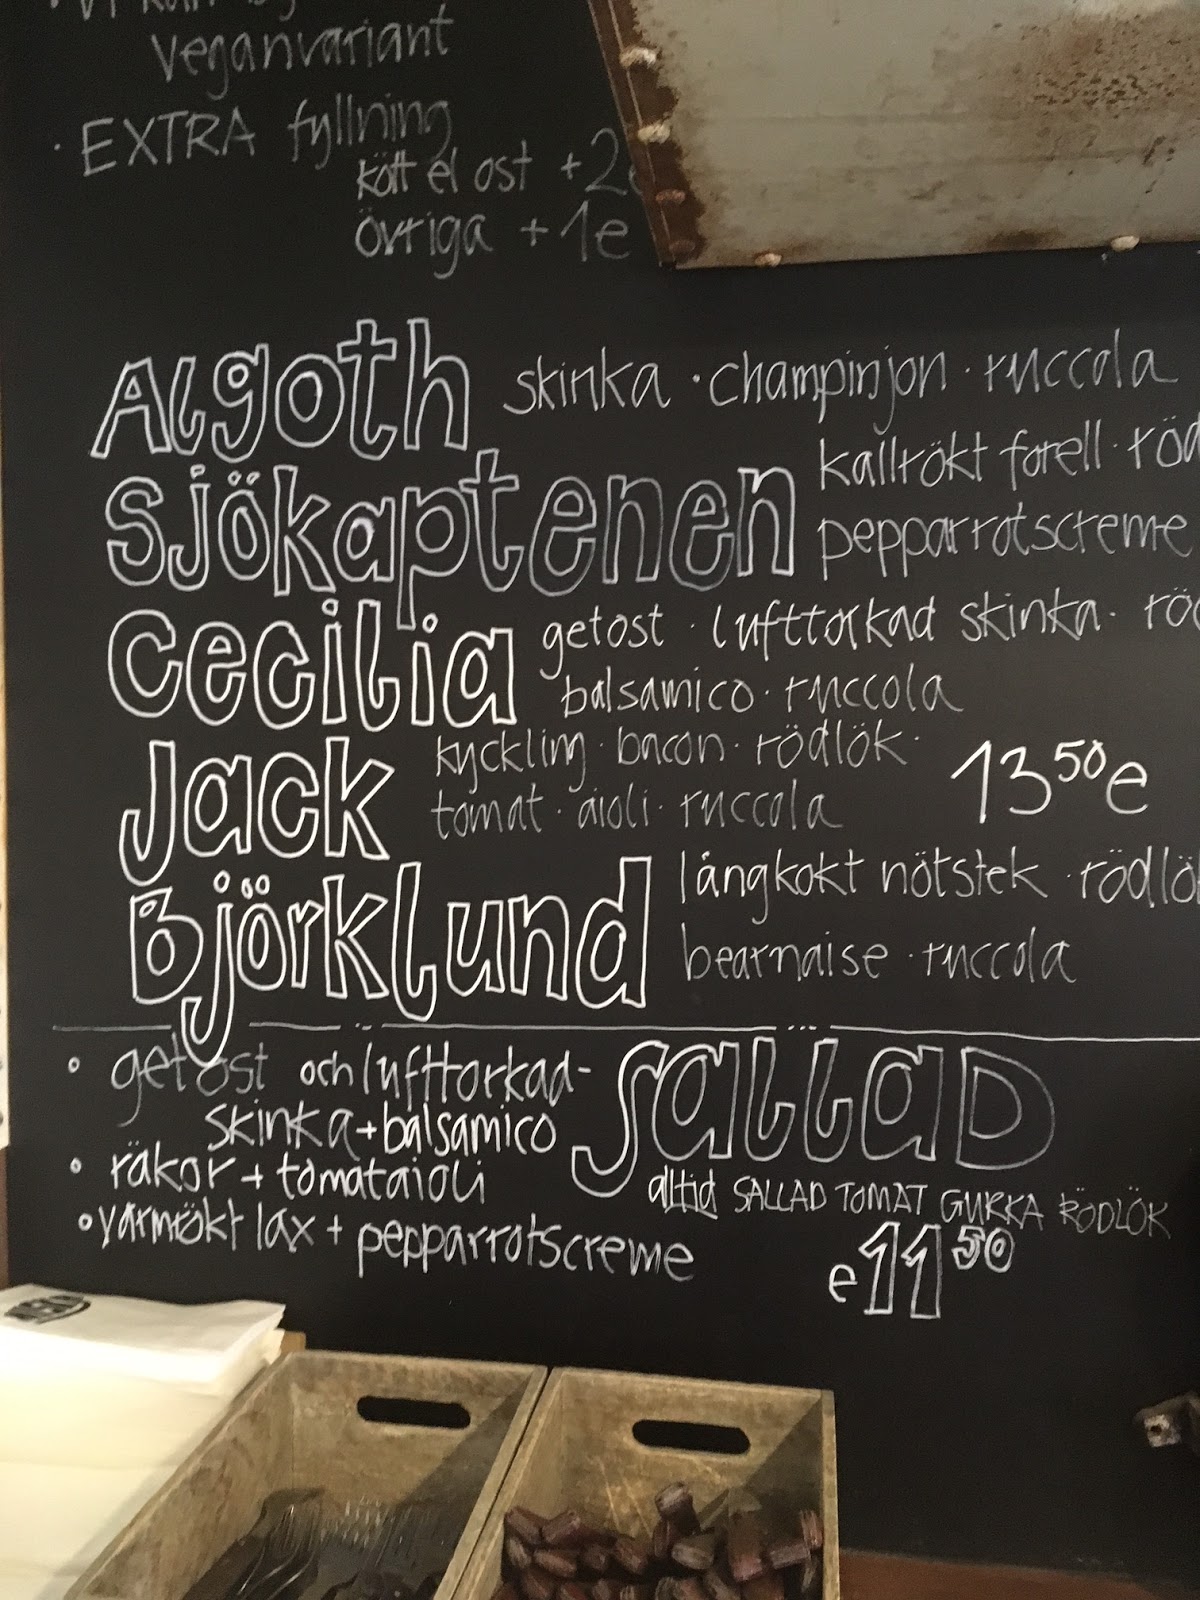 veganvariant
· EXTRA fyllning
kött el ost +2
övriga +1e
Algoth skinka · champinjon · ruccola
Sjökaptenen kallrökt forell · röd
pepparrotscreme
Cecilia getost · lufttorkad skinka · röd
balsamico · ruccola
Jack kyckling · bacon · rödlök ·
tomat · aioli · ruccola 13 50 e
Björklund långkokt nötstek · rödlö
bearnaise · ruccola
• getost och lufttorkad-
skinka + balsamico
SALLAD
• räkor + tomataioli
alltid SALLAD TOMAT GURKA RÖDLÖK
• varmrökt lax + pepparrotscreme
e 11 50